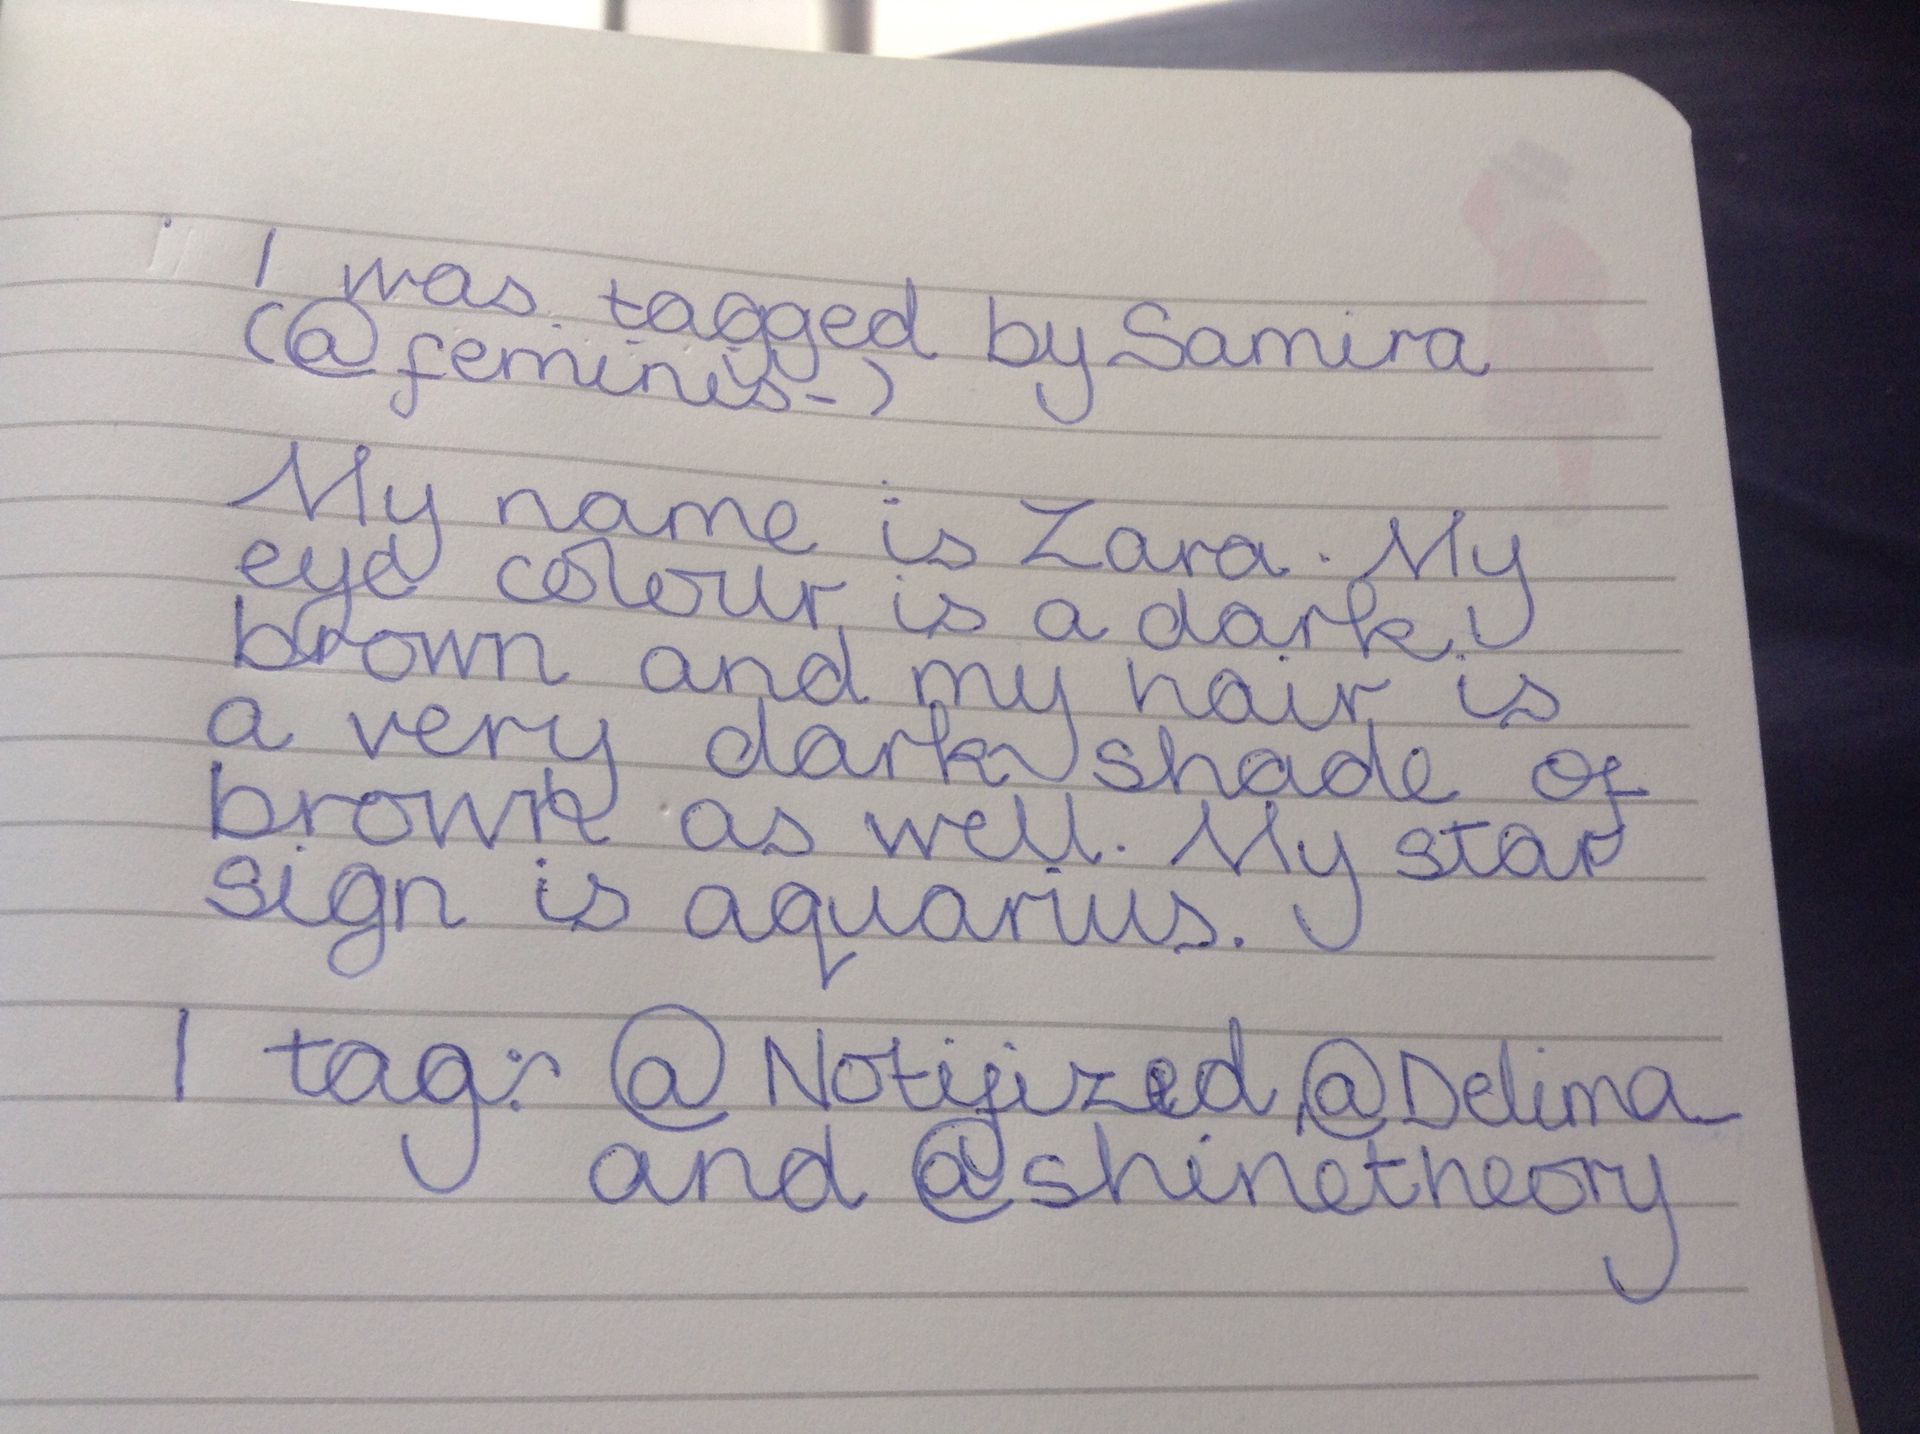 I was tagged by Samira
(@feminis-)
My name is Zara. My
eye colour is a dark
brown and my hair is
a very dark shade of
brown as well. My star
sign is aquarius.
I tag: @Notijized, @Delima
and @shinetheory